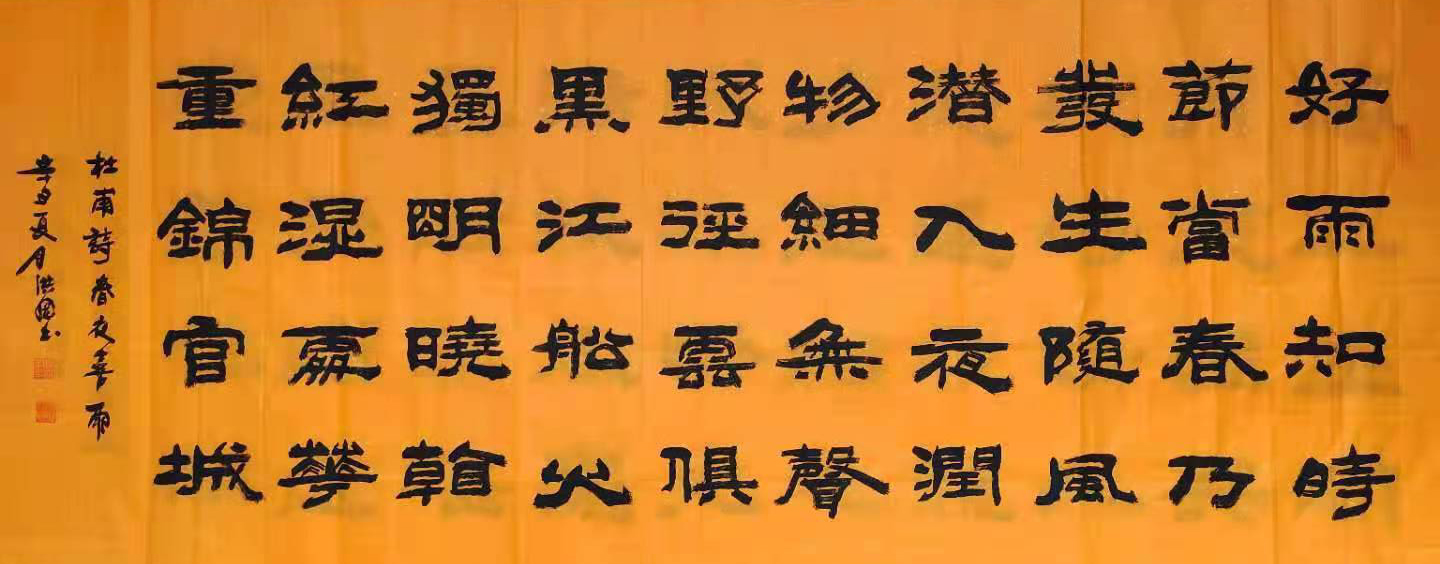 好雨知時
節當春乃
發生隨風
潜入夜潤
物細無聲
野徑雲俱
黑江船火
獨明曉看
紅湿處華
重錦官城
杜甫詩春夜喜雨
辛丑夏月洪國书